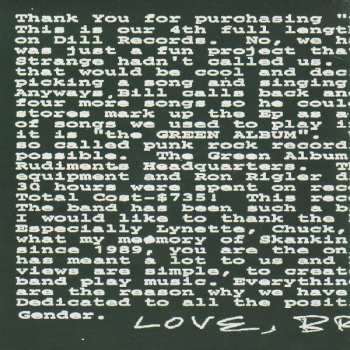 Thank You for purchasing "
This is our 4th full lengt
on Dill Records. No, we ha
was just a fun project tha
Strange hadn't called us.
that would be cool and dec
picking a song and singing
Anyways,Bill calls back an
four more songs so he coul
stores mark up the Ep as a
of songs we used to play l
it is "the GREEN ALBUM".
so called punk rock record
possible. The Green Album
Rudiments Headquarters. T
equipment and Ron Rigler d
30 hours were spent on rec
Total Cost-$735! This reco
The band has been such a b
I would like to thank the
Especially Lynette, Chuck,
what my memory of Skankin
since 1989, you are the on
has meant a lot to us and
views are simple, to creat
band play music. Everythin
are the reason why we have
Dedicated to all the posit
Gender. LOVE, BR